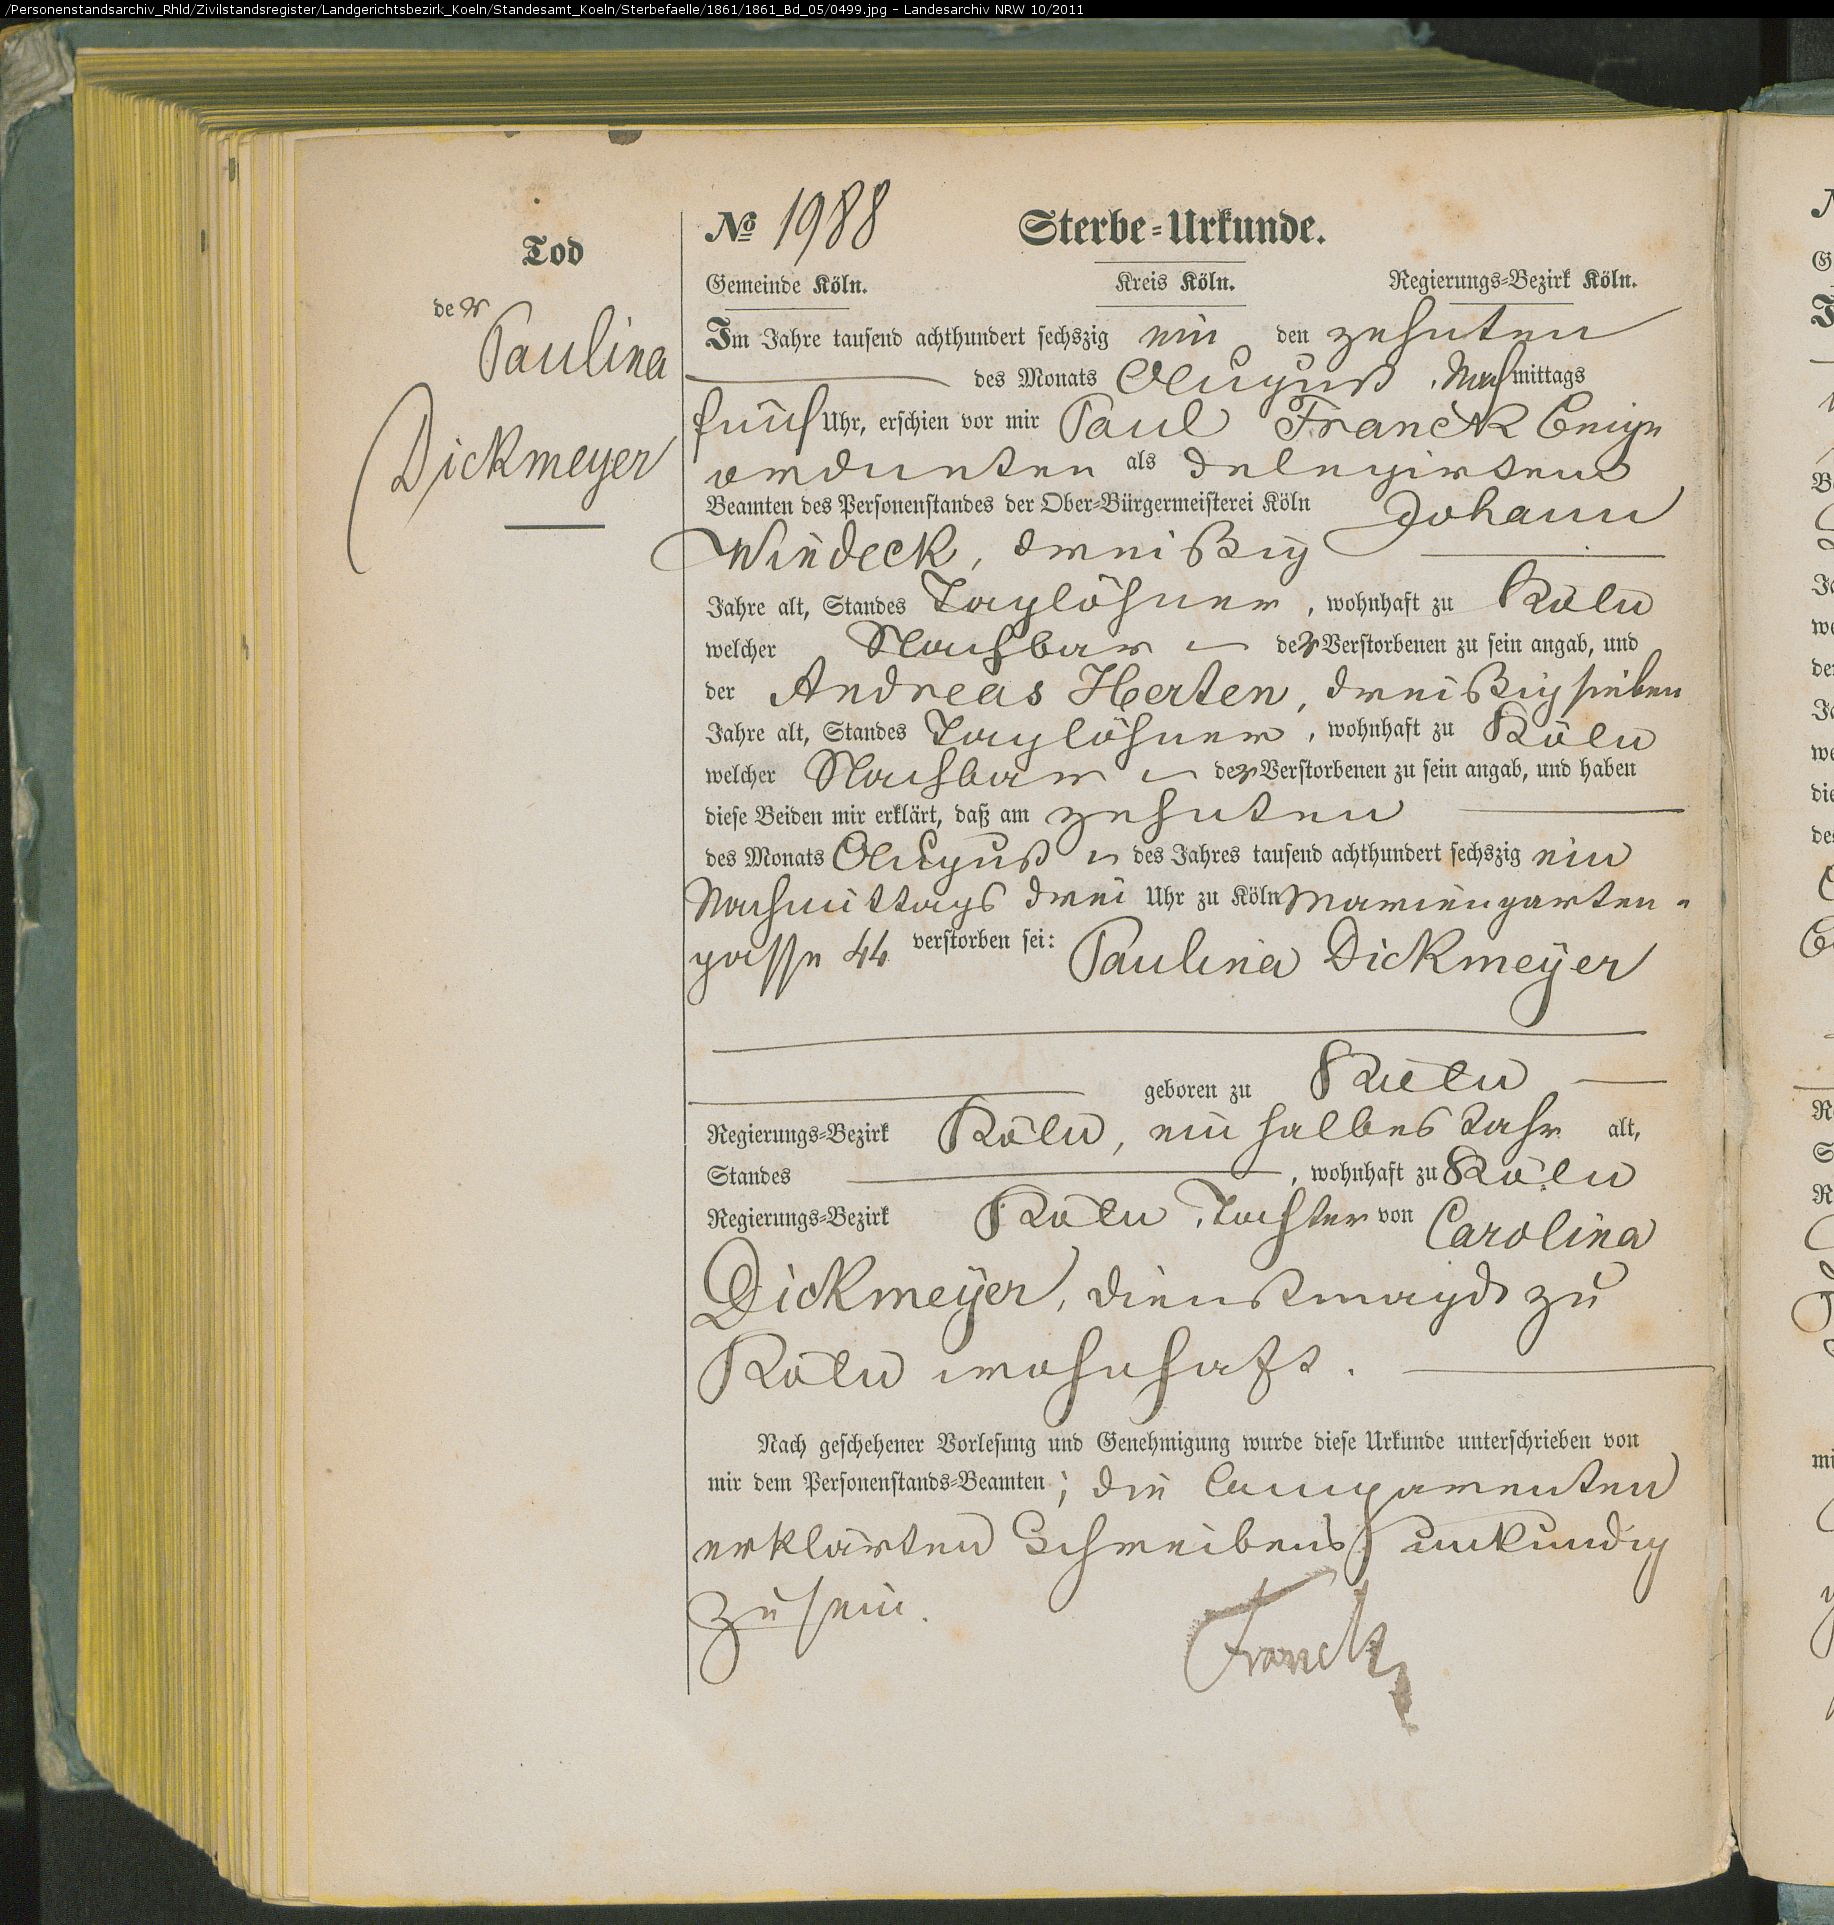 /Personenstandsarchiv_Rhld/Zivilstandsregister/Landgerichtsbezirk_Koeln/Standesamt_Koeln/Sterbefaelle/1861/1861_Bd_05/0499.jpg - Landesarchiv NRW 10/2011
Tod
der
Paulina
Dickmeyer
No 1988 Sterbe=Urkunde.
Gemeinde Köln. Kreis Köln. Regierungs=Bezirk Köln.
Im Jahre tausend achthundert sechszig ein den zehnten
des Monats August, Nachmittags
fünf Uhr, erschien vor mir Paul Franck Beige
ordneten als delegirtem
Beamten des Personenstandes der Ober=Bürgermeisterei Köln Johann
Windeck, dreißig
Jahre alt, Standes Taglöhner, wohnhaft zu Köln
welcher Nachbar der Verstorbenen zu sein angab, und
der Andreas Herten, dreißigsieben
Jahre alt, Standes Taglöhner, wohnhaft zu Köln
welcher Nachbar der Verstorbenen zu sein angab, und haben
diese Beiden mir erklärt, daß am zehnten
des Monats August des Jahres tausend achthundert sechszig ein
Nachmittags drei Uhr zu Köln Mariengarten=
gasse 44 verstorben sei: Paulina Dickmeyer
geboren zu Köln
Regierungs=Bezirk Köln, ein halbes Jahr alt,
Standes , wohnhaft zu Köln
Regierungs=Bezirk Köln, Tochter von Carolina
Dickmeyer, Dienstmagd zu
Köln wohnhaft.
Nach geschehener Vorlesung und Genehmigung wurde diese Urkunde unterschrieben von
mir dem Personenstands=Beamten; die Comparenten
erklärten Schreibens unkundig
zu sein.
Franck